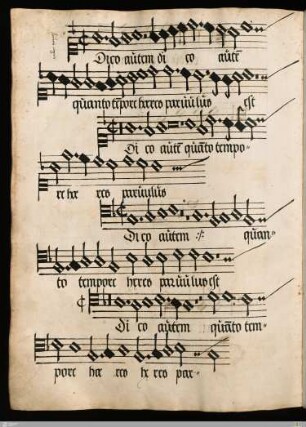 Dico autem di co autē
quanto tēpore heres parvulus est
Di co autē quāto tempo-
re he res parvulus
Di co autem :/: quan-
to tempore heres parvulus est
Di co autem quāto tem-
pore he res he res par-